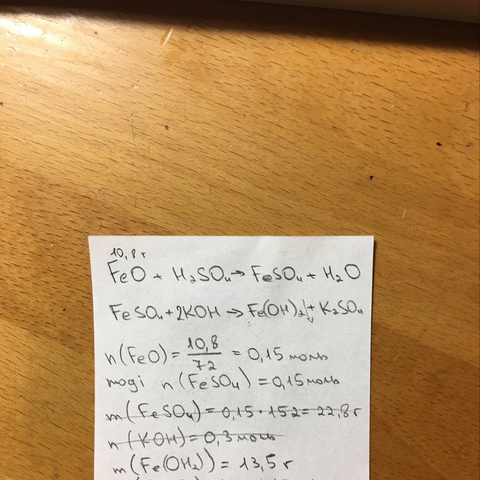 10,8 г
FeO + H₂SO₄ → FeSO₄ + H₂O
FeSO₄ + 2KOH → Fe(OH)₂↓ + K₂SO₄
n(FeO) = 10,8/72 = 0,15 моль
тоді n(FeSO₄) = 0,15 моль
m(FeSO₄) = 0,15 · 152 = 22,8 г
n(KOH) = 0,3 моль
m(Fe(OH₂)) = 13,5 г